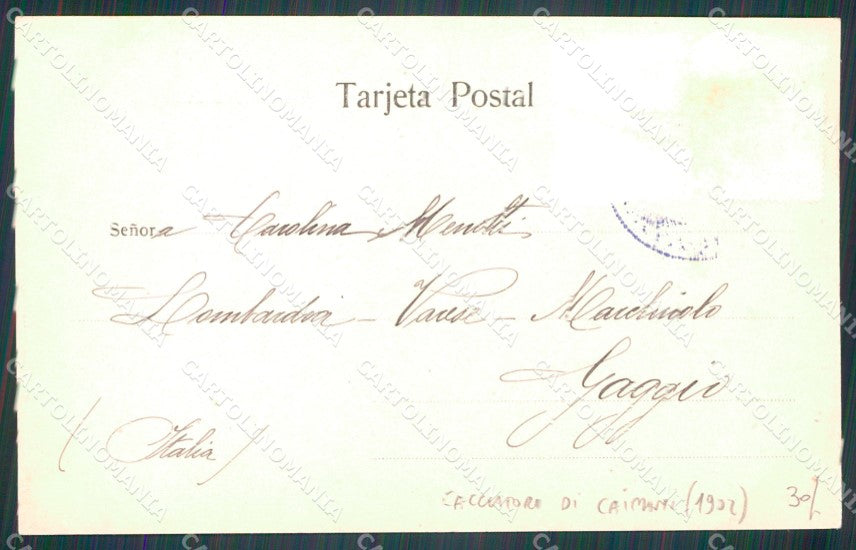 Tarjeta Postal
Señora Carolina Menotti
Lombardia - Varese - Macchirolo
Gaggio
(Italia)
CACCIATORE DI CAIMANI (1902) 30/
CARTOLINOMANIA